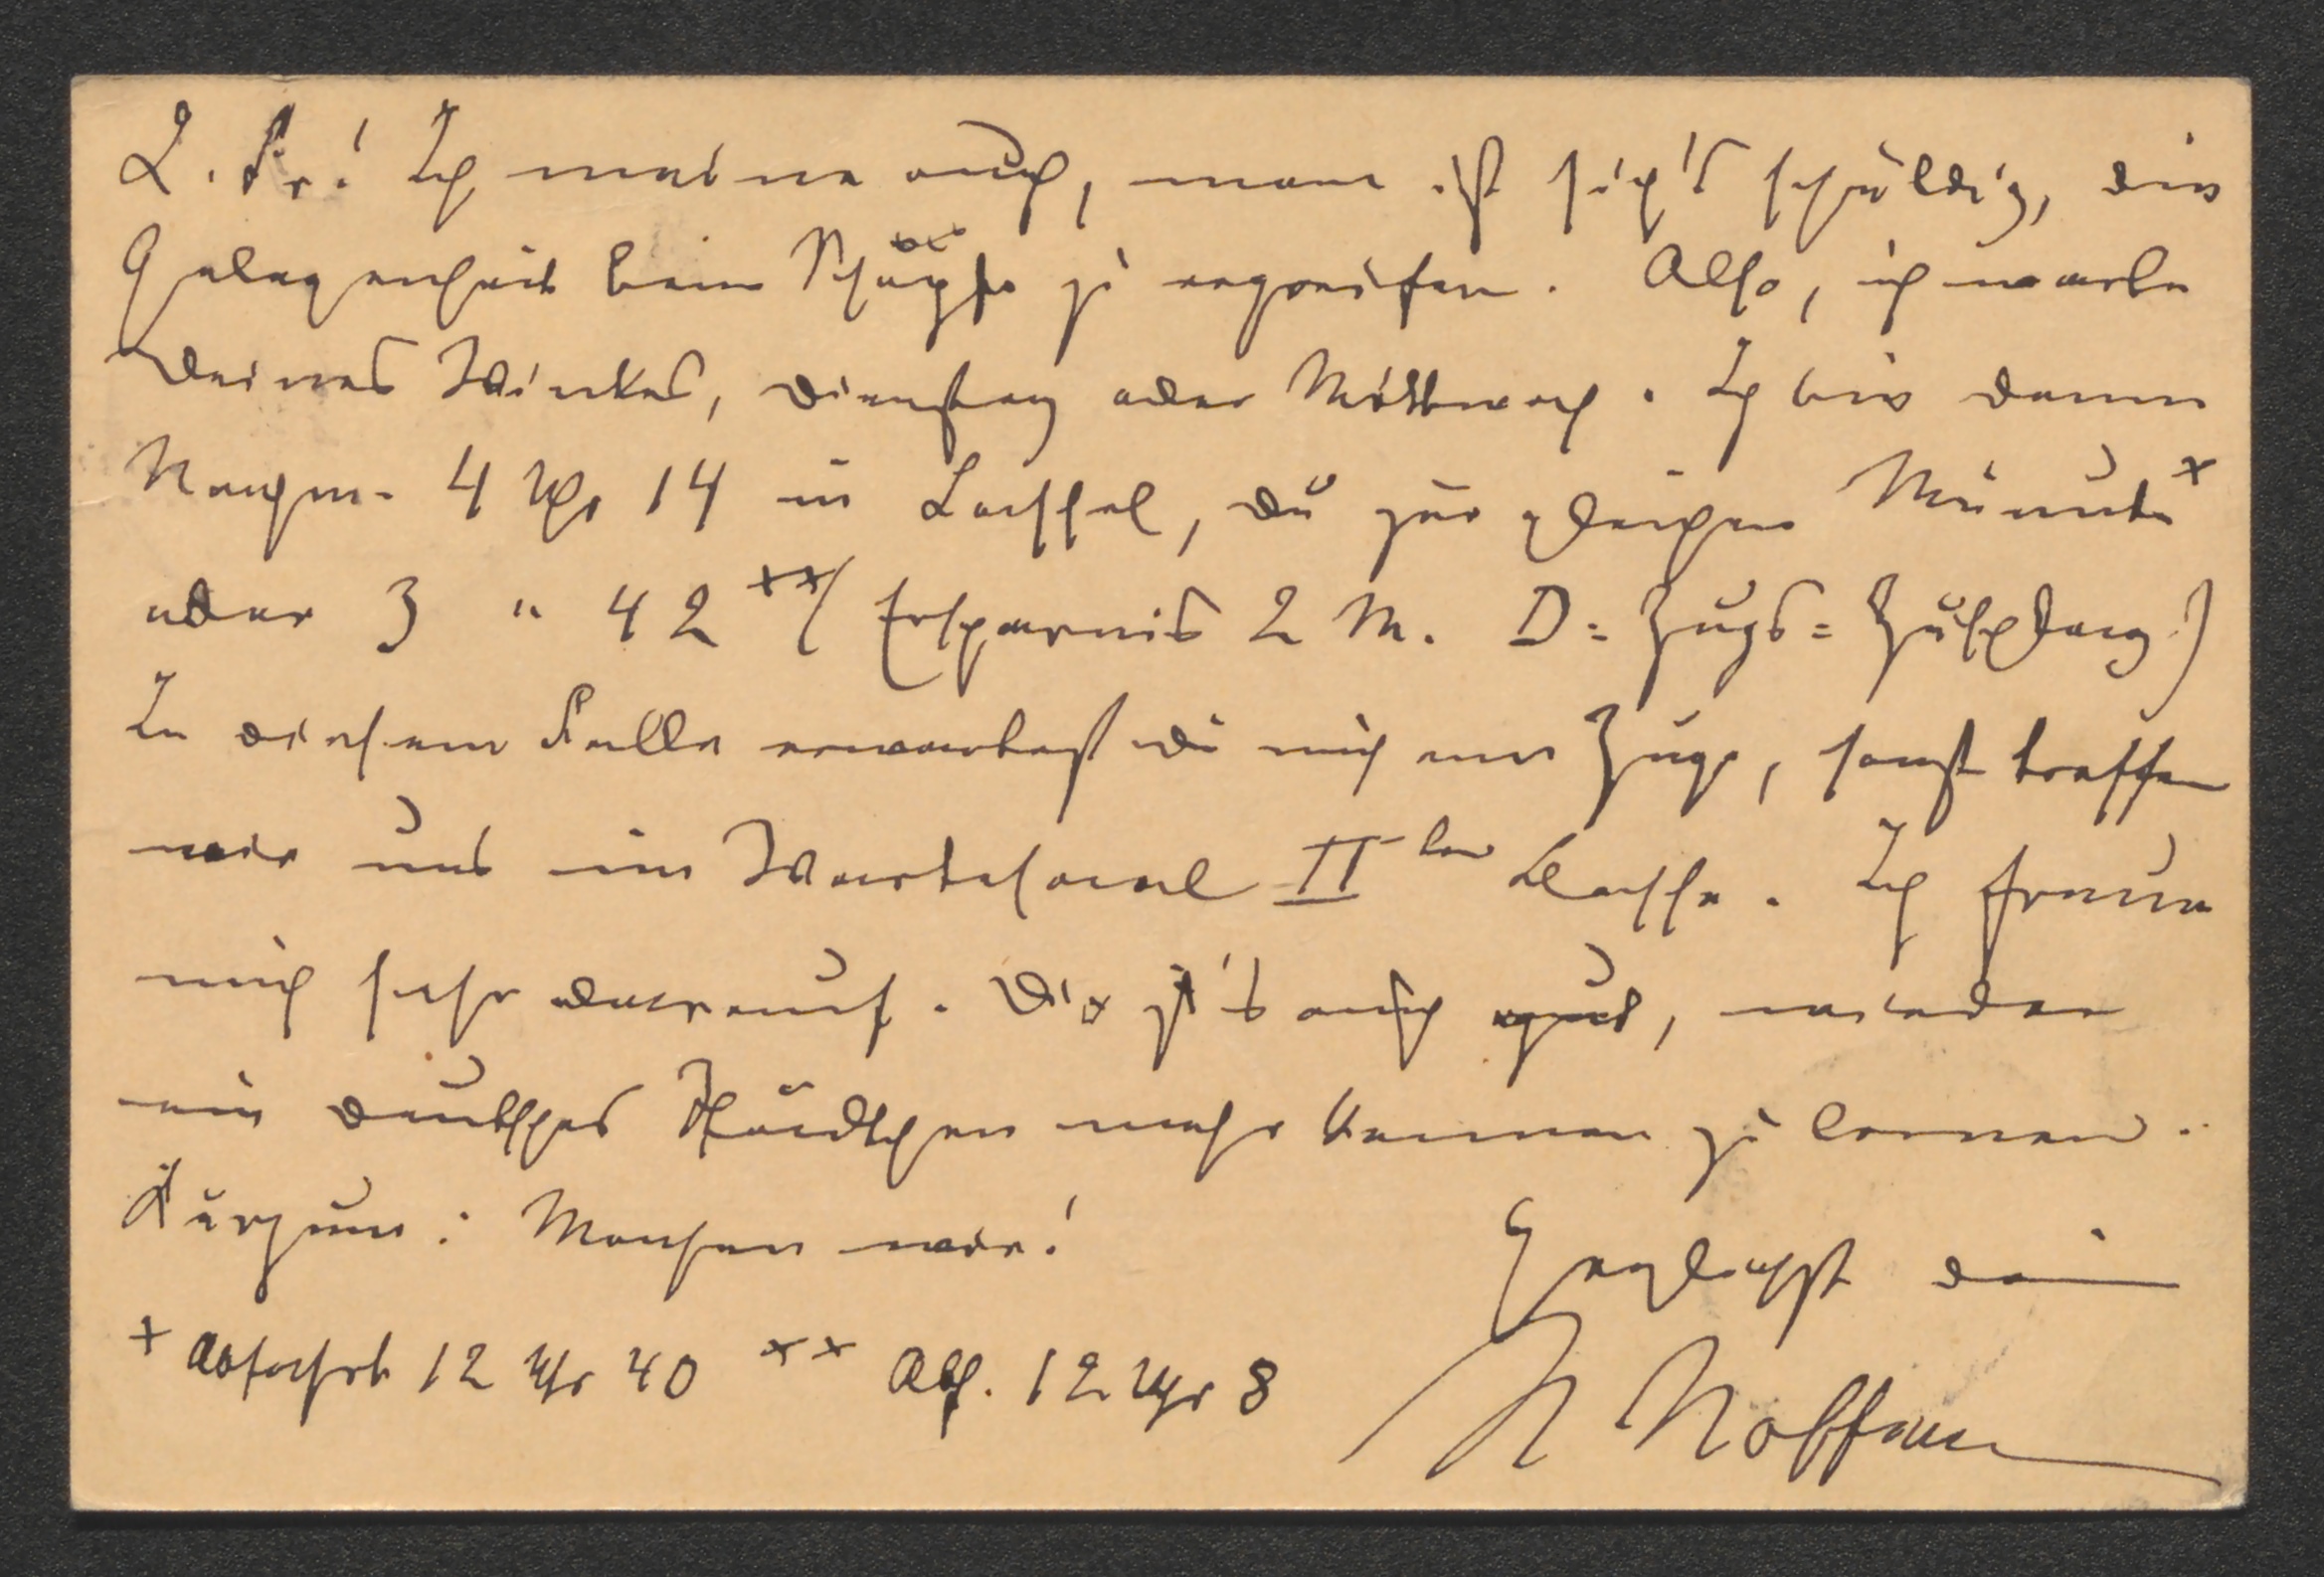 L. Fr.! Ich meine auch, man ist sich's schuldig, die
Gelegenheit beim Schopfe zu ergreifen. Also, ich warte
Deines Winkes, Dienstag oder Mittwoch. Ich bin dann
Nachm. 4 Uhr 14 in Cassel, du zur gleichen Minute x
oder 3 " 42 xx/ (Ersparnis 2 M. D=Zugs=Zuschlag.)
In diesem Falle erwartest du mich am Zuge, sonst treffen
wir uns im Wartesaal IIter Classe. Ich freue
mich sehr darauf. Die ists auch gut, wieder
ein deutsches Städtchen mehr kennen zu lernen.
Kurzum: Machen wir!
Herzlichst dein
+ Abfahrt 12 Uhr 40 xx Abf. 12 Uhr 8
Hoffmann